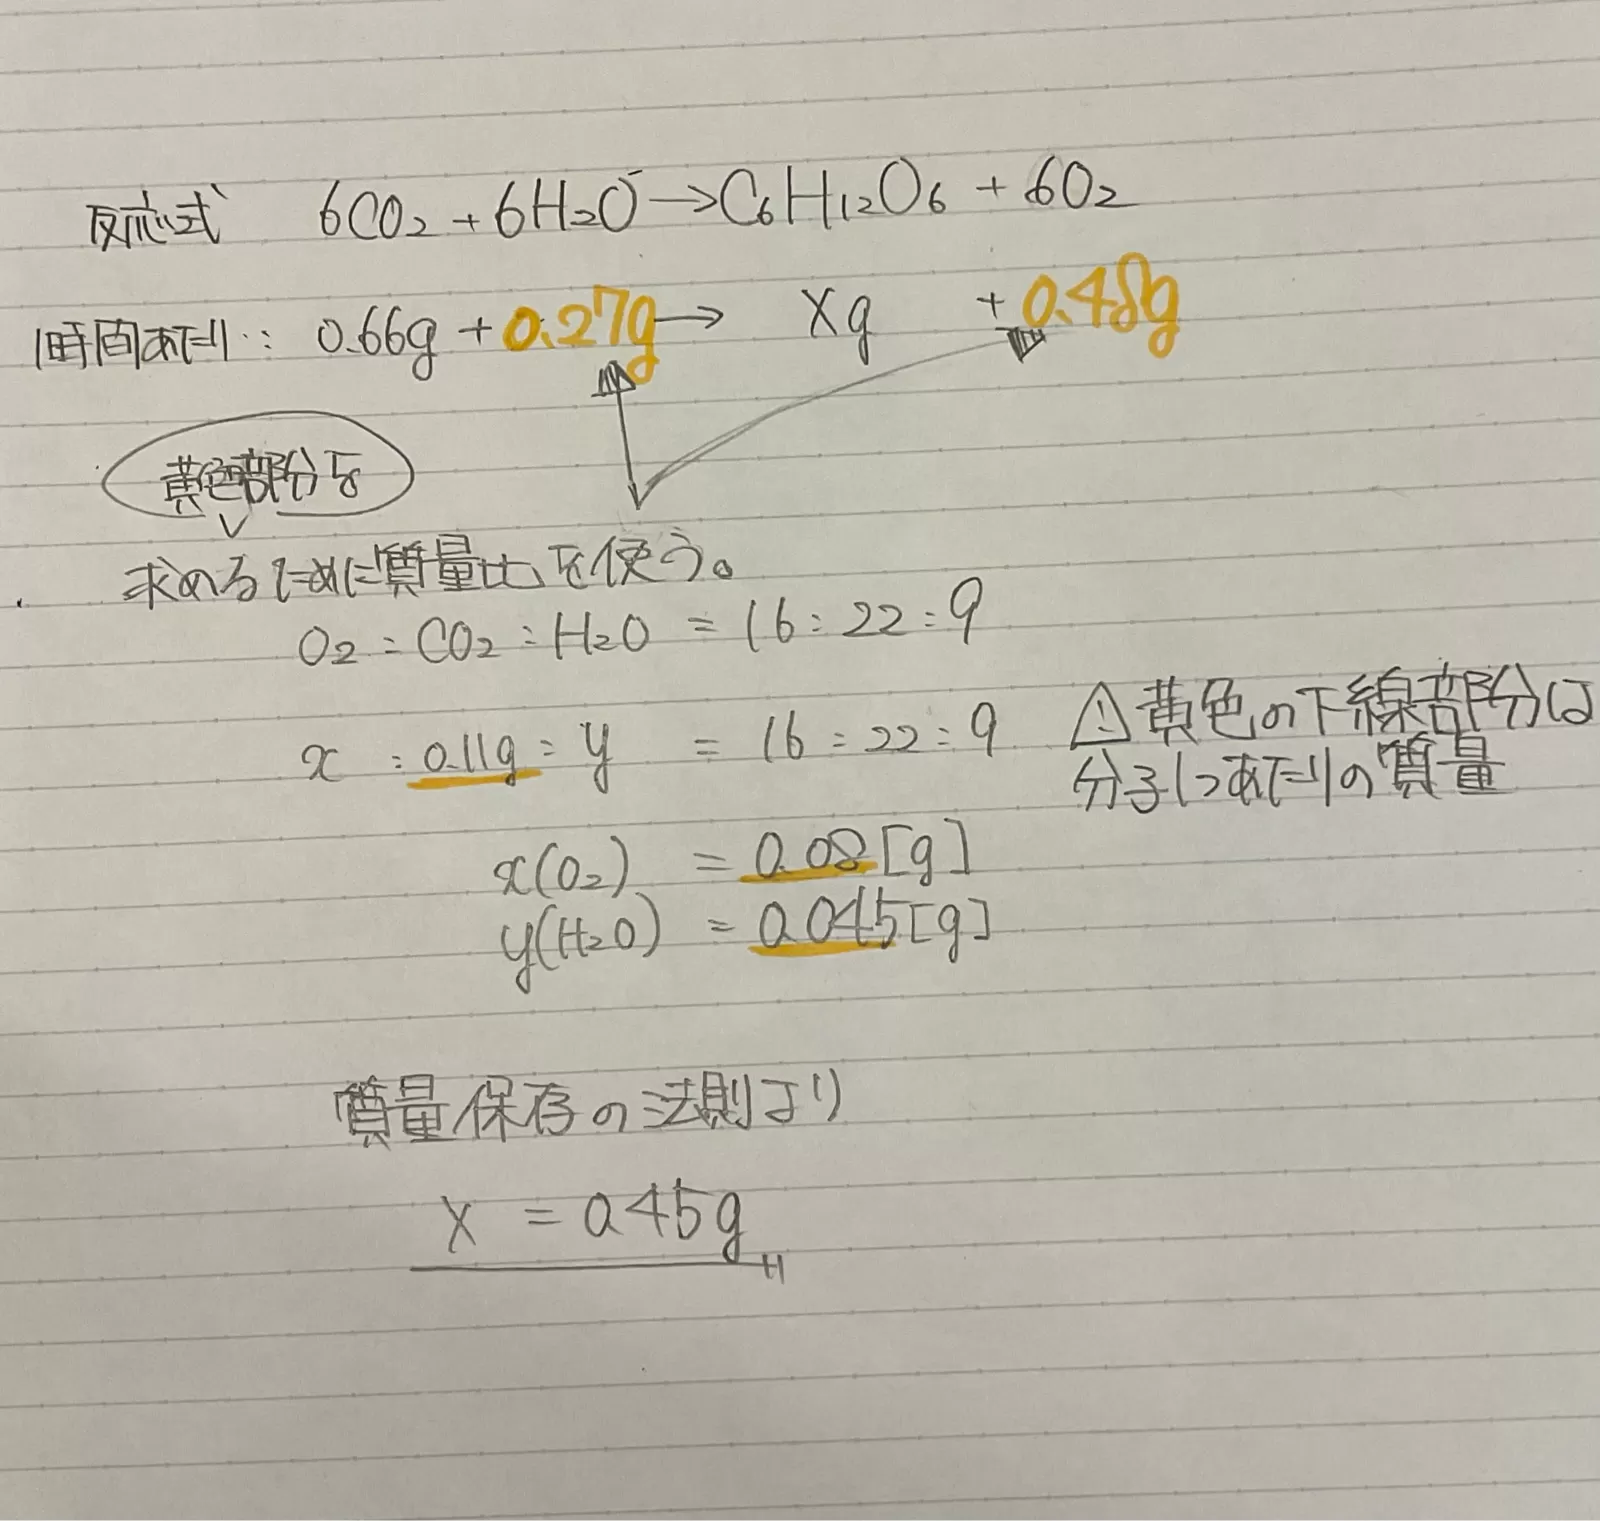 反応式 6CO₂+6H₂O→C₆H₁₂O₆ + 6O₂
1時間あたり: 0.66g + 0.27g → Xg + 0.48g
黄色部分を
求めるために質量比を使う。
O₂:CO₂:H₂O = 16:22:9
x:0.11g:y = 16:22:9
⚠黄色の下線部分は
分子1つあたりの質量
x(O₂) = 0.08[g]
y(H₂O) = 0.045[g]
質量保存の法則より
X = 0.45g